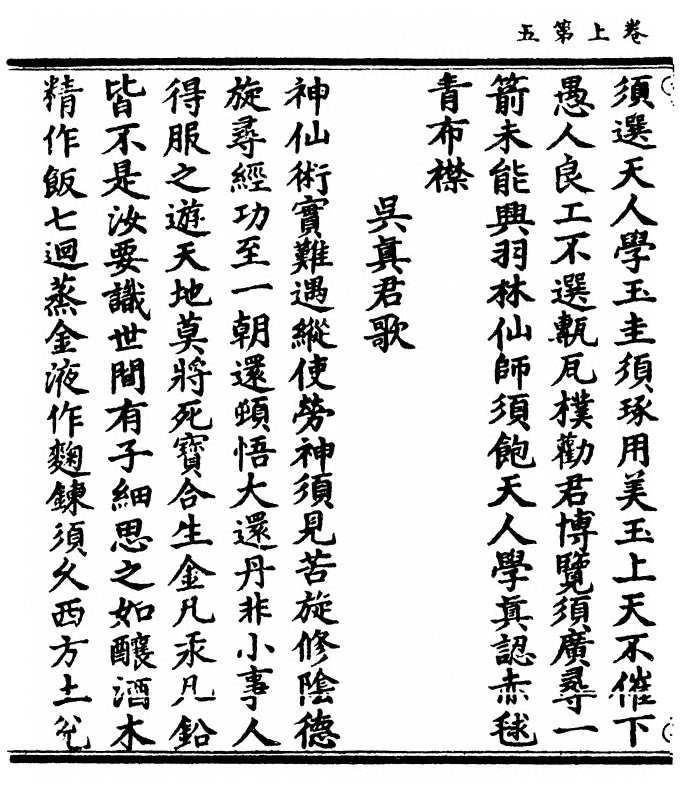 卷上第五
須選天人學玉圭須琢用美玉上天不催下
愚人良工不選甎瓦樸勸君博覽須廣尋一
箭未能興羽林仙師須飽天人學真認赤毬
青布襟
吳真君歌
神仙術實難遇縱使勞神須見苦旋修陰德
旋尋經功至一朝還頓悟大還丹非小事人
得服之遊天地莫將死寶合生金凡汞凡鉛
皆不是汝要識世間有子細思之如釀酒木
精作飯七迴蒸金液作麴鍊須久西方土兌